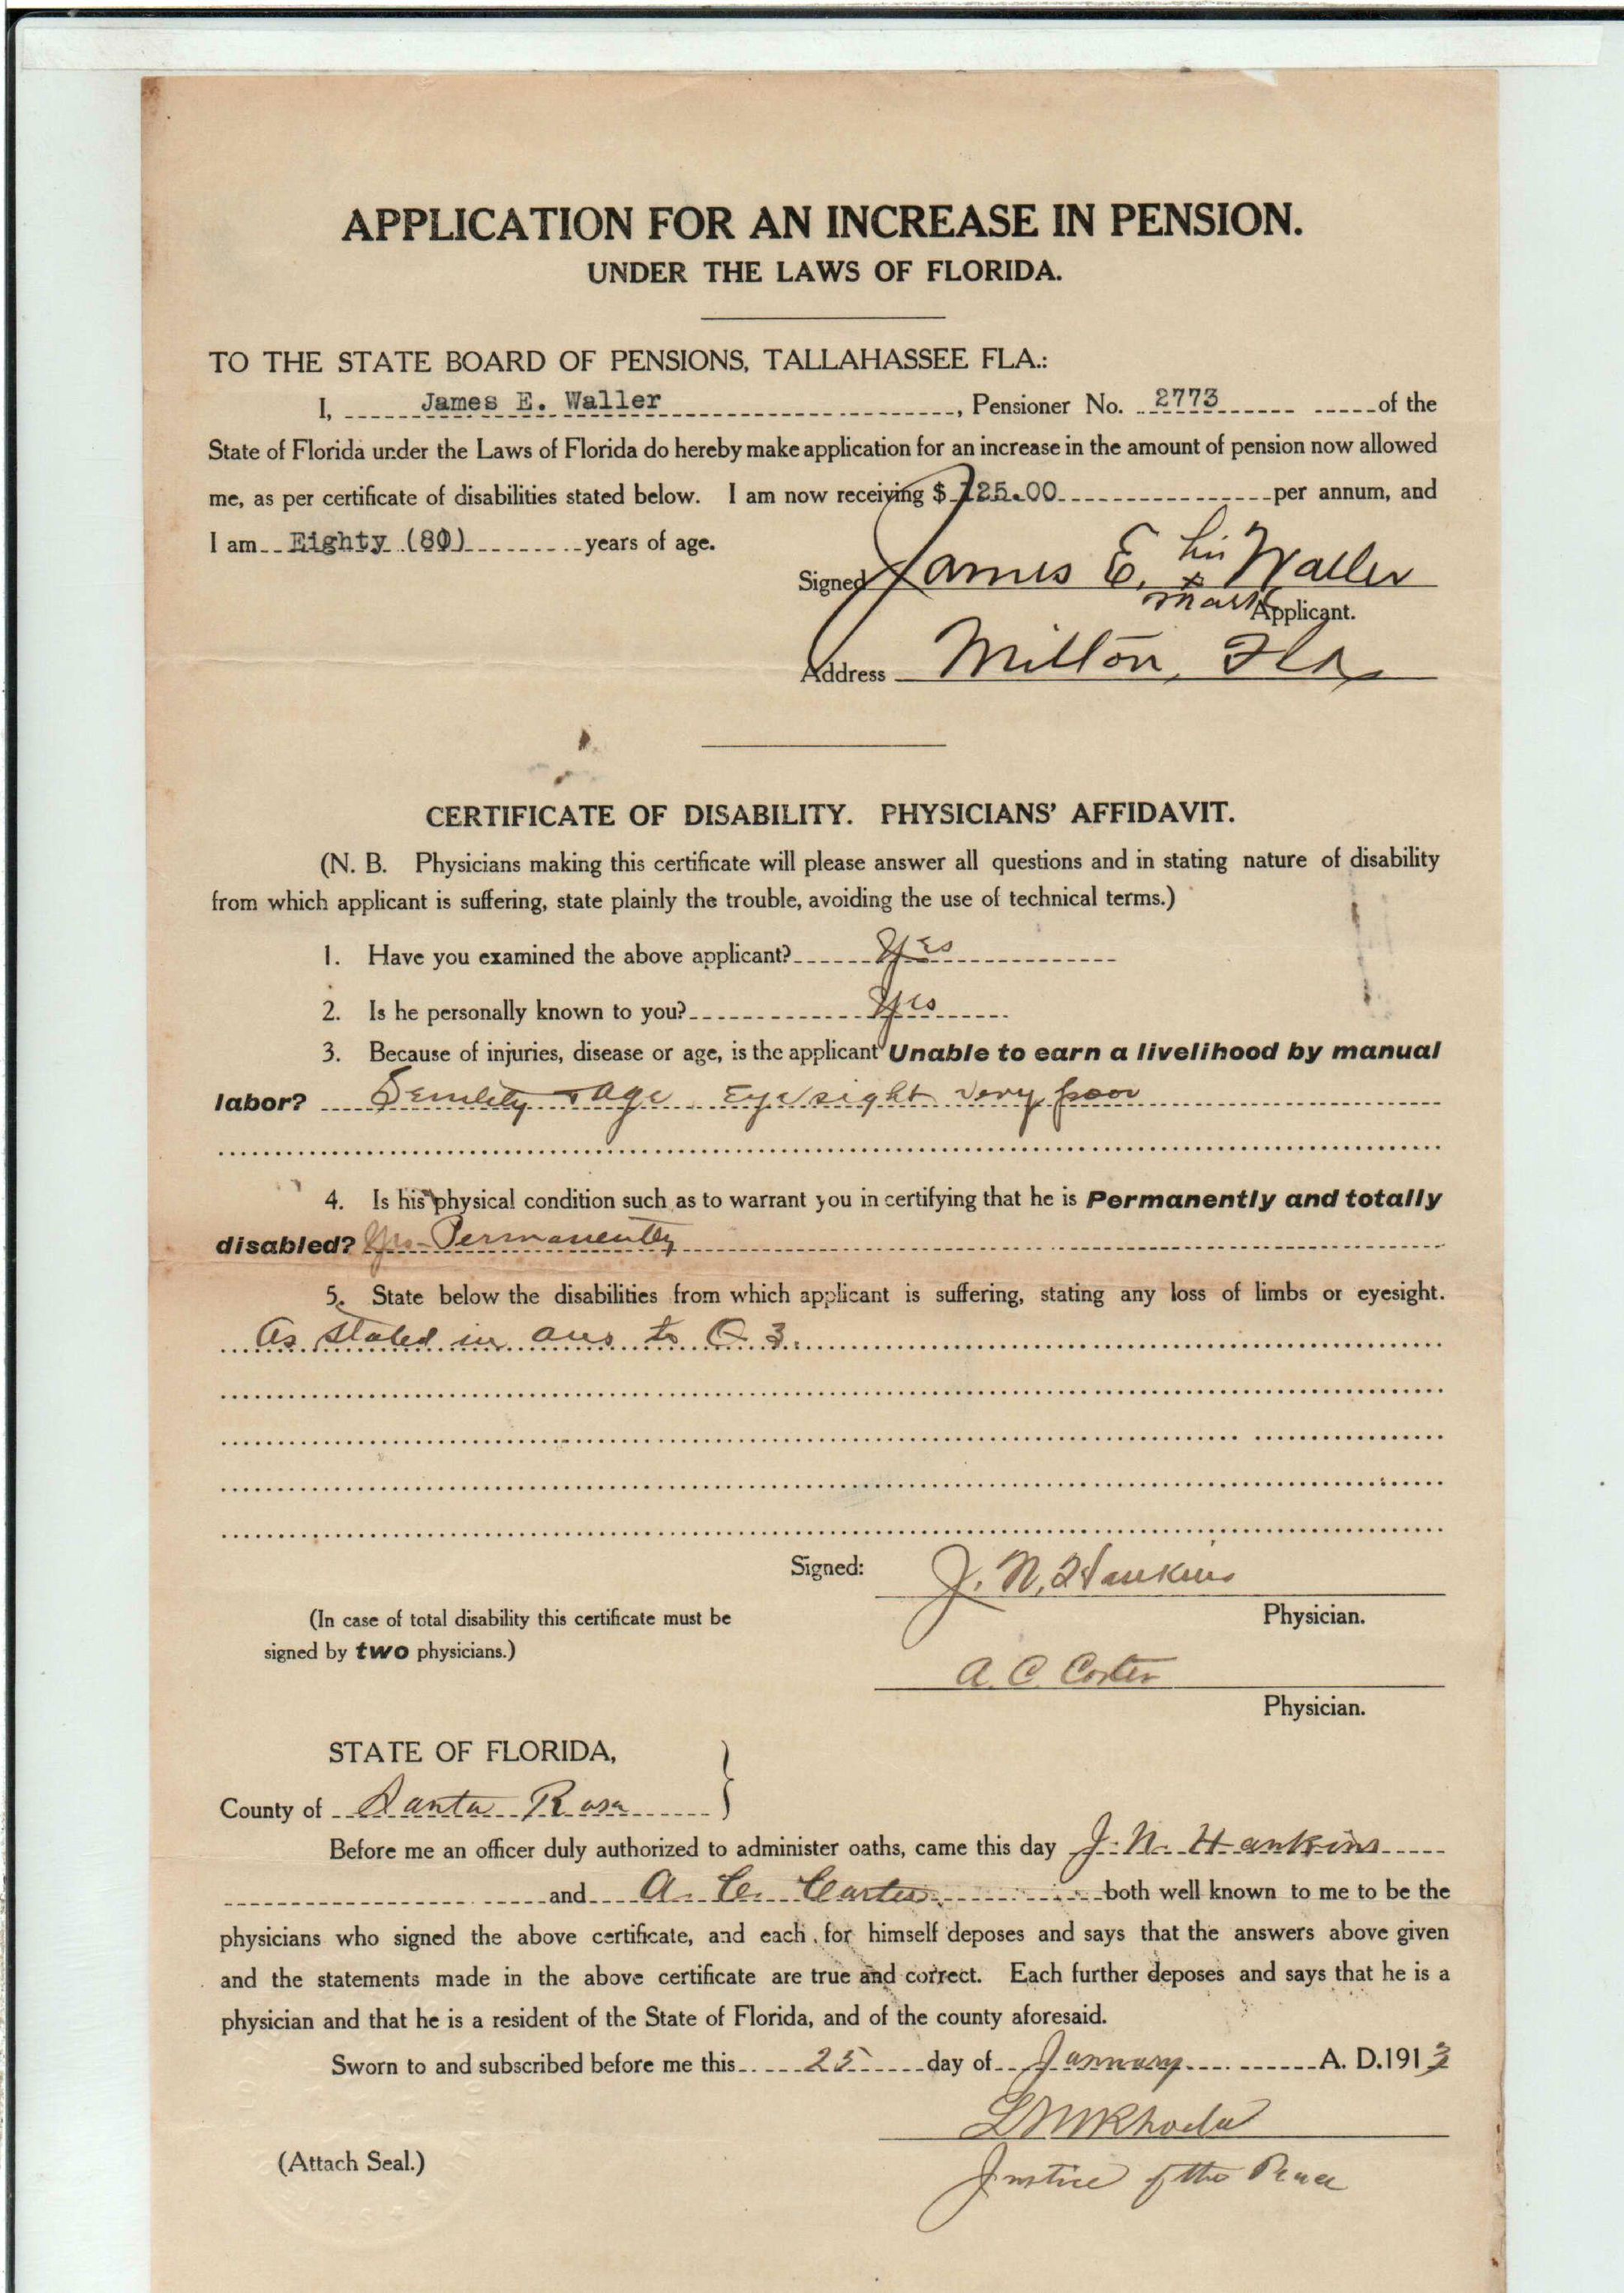 APPLICATION FOR AN INCREASE IN PENSION.
UNDER THE LAWS OF FLORIDA.
TO THE STATE BOARD OF PENSIONS, TALLAHASSEE FLA.:
I, James E. Waller, Pensioner No. 2773 of the
State of Florida under the Laws of Florida do hereby make application for an increase in the amount of pension now allowed
me, as per certificate of disabilities stated below. I am now receiving $ 125.00 per annum, and
I am Eighty (80) years of age.
Signed James E. his x Waller
mark Applicant.
Address Milton, Fla
CERTIFICATE OF DISABILITY. PHYSICIANS' AFFIDAVIT.
(N. B. Physicians making this certificate will please answer all questions and in stating nature of disability
from which applicant is suffering, state plainly the trouble, avoiding the use of technical terms.)
1. Have you examined the above applicant? Yes
2. Is he personally known to you? Yes
3. Because of injuries, disease or age, is the applicant Unable to earn a livelihood by manual
labor? Senility + age Eyesight very poor
4. Is his physical condition such as to warrant you in certifying that he is Permanently and totally
disabled? Yes - Permanently
5. State below the disabilities from which applicant is suffering, stating any loss of limbs or eyesight.
As stated in ans to Q 3.
Signed: J. N. Hankins
(In case of total disability this certificate must be Physician.
signed by two physicians.)
A. C. Carter
Physician.
STATE OF FLORIDA,
County of Santa Rosa }
Before me an officer duly authorized to administer oaths, came this day J. N. Hankins
and A. C. Carter both well known to me to be the
physicians who signed the above certificate, and each for himself deposes and says that the answers above given
and the statements made in the above certificate are true and correct. Each further deposes and says that he is a
physician and that he is a resident of the State of Florida, and of the county aforesaid.
Sworn to and subscribed before me this 25 day of January A. D. 1913
(Attach Seal.)
Justice of the Peace